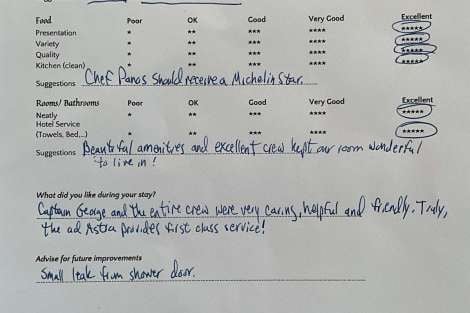 Food Poor OK Good Very Good Excellent
Presentation * ** *** **** *****
Variety * ** *** **** *****
Quality * ** *** **** *****
Kitchen (clean) * ** *** **** *****
Suggestions Chef Panos should receive a Michelin Star.
Rooms/ Bathrooms Poor OK Good Very Good Excellent
Neatly * ** *** **** *****
Hotel Service
(Towels, Bed,..) * ** *** **** *****
Suggestions Beautiful amenities and excellent crew kept our room wonderful
to live in!
What did you like during your stay?
Captain George and the entire crew were very caring, helpful and friendly. Truly,
the ad Astra provides first class service!
Advise for future improvements
Small leak from shower door.